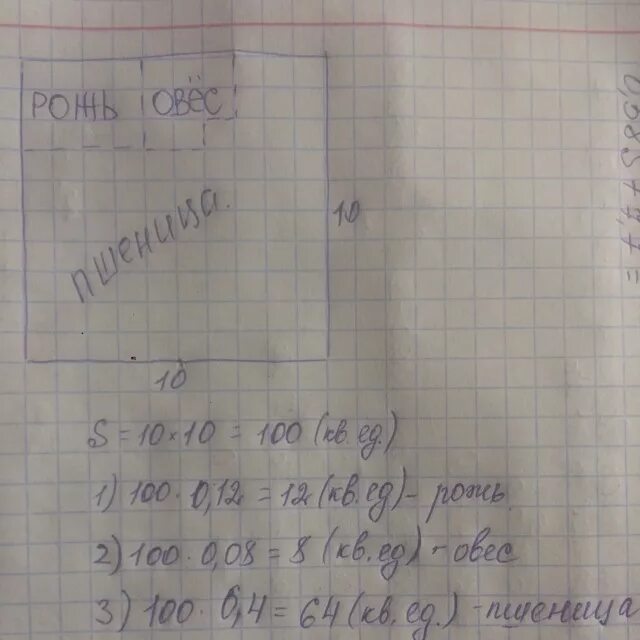 РОЖЬ ОВЁС
пшеница.
10
10
S = 10 × 10 = 100 (кв. ед.)
1) 100 · 0,12 = 12 (кв. ед) - рожь
2) 100 · 0,08 = 8 (кв. ед) - овес
3) 100 · 0,4 = 64 (кв. ед.) - пшеница